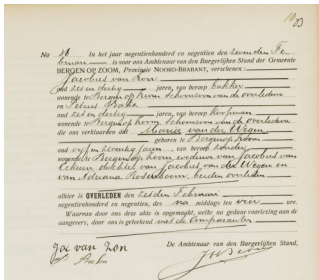 1983
No 28 In het jaar negentienhonderd en negentien den zevenden Fe
bruari is voor ons Ambtenaar van den Burgerlijken Stand der Gemeente
BERGEN OP ZOOM, Provincie NOORD-BRABANT, verschenen:
Jacobus van Zon
oud zes en dertig jaren, van beroep bakker
wonende te Bergen op Zoom schoonzoon van de overledene
en Petrus Bakx
oud zes en dertig jaren, van beroep koopman
wonende te Bergen op Zoom schoonzoon van de overledene
die ons verklaarden dat Maria van der Wegen
geboren te Bergen op Zoom
oud vijf en zeventig jaren, van beroep zonder
wonende te Bergen op Zoom, weduwe van Jacobus van
dochter van Jacobus van der Wegen en
van Adriana beiden overleden
alhier is OVERLEDEN den zesden Februari
negentienhonderd en negentien, des na middags ten vier ure.
Waarvan door ons deze akte is opgemaakt, welke na gedane voorlezing aan de
aangevers, door ons is geteekend met de Comparanten
De Ambtenaar van den Burgerlijken Stand,
Jac van Zon
P Bakx